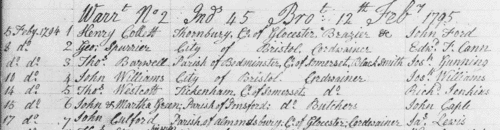 Warrt No 2 Ind 45 Brot. 12th Feby 1795
5 Feby. 1794 1 Henry Collett Thornbury, C. of Glocester Brazier & John Ford
8 do 2 Geo. Spurrier City of Bristol Cordwainer Edwd. T. Cann
do do 3 Thos. Barwell Parish of Bedminster, C. of Somerset, Black Smith Jos. Gunning
10 do 4 John Williams City of Bristol Cordwainer Jos. Williams
14 do 5 Thos. Westcott Tickenham, C. of Somerset do Richd. Jenkins
15 do 6 John & Martha Green, Parish of do Butchers John Cople
17 do 7 John Parish of Almondsbury, C. of Glocester Cordwainer Jas. Lewis